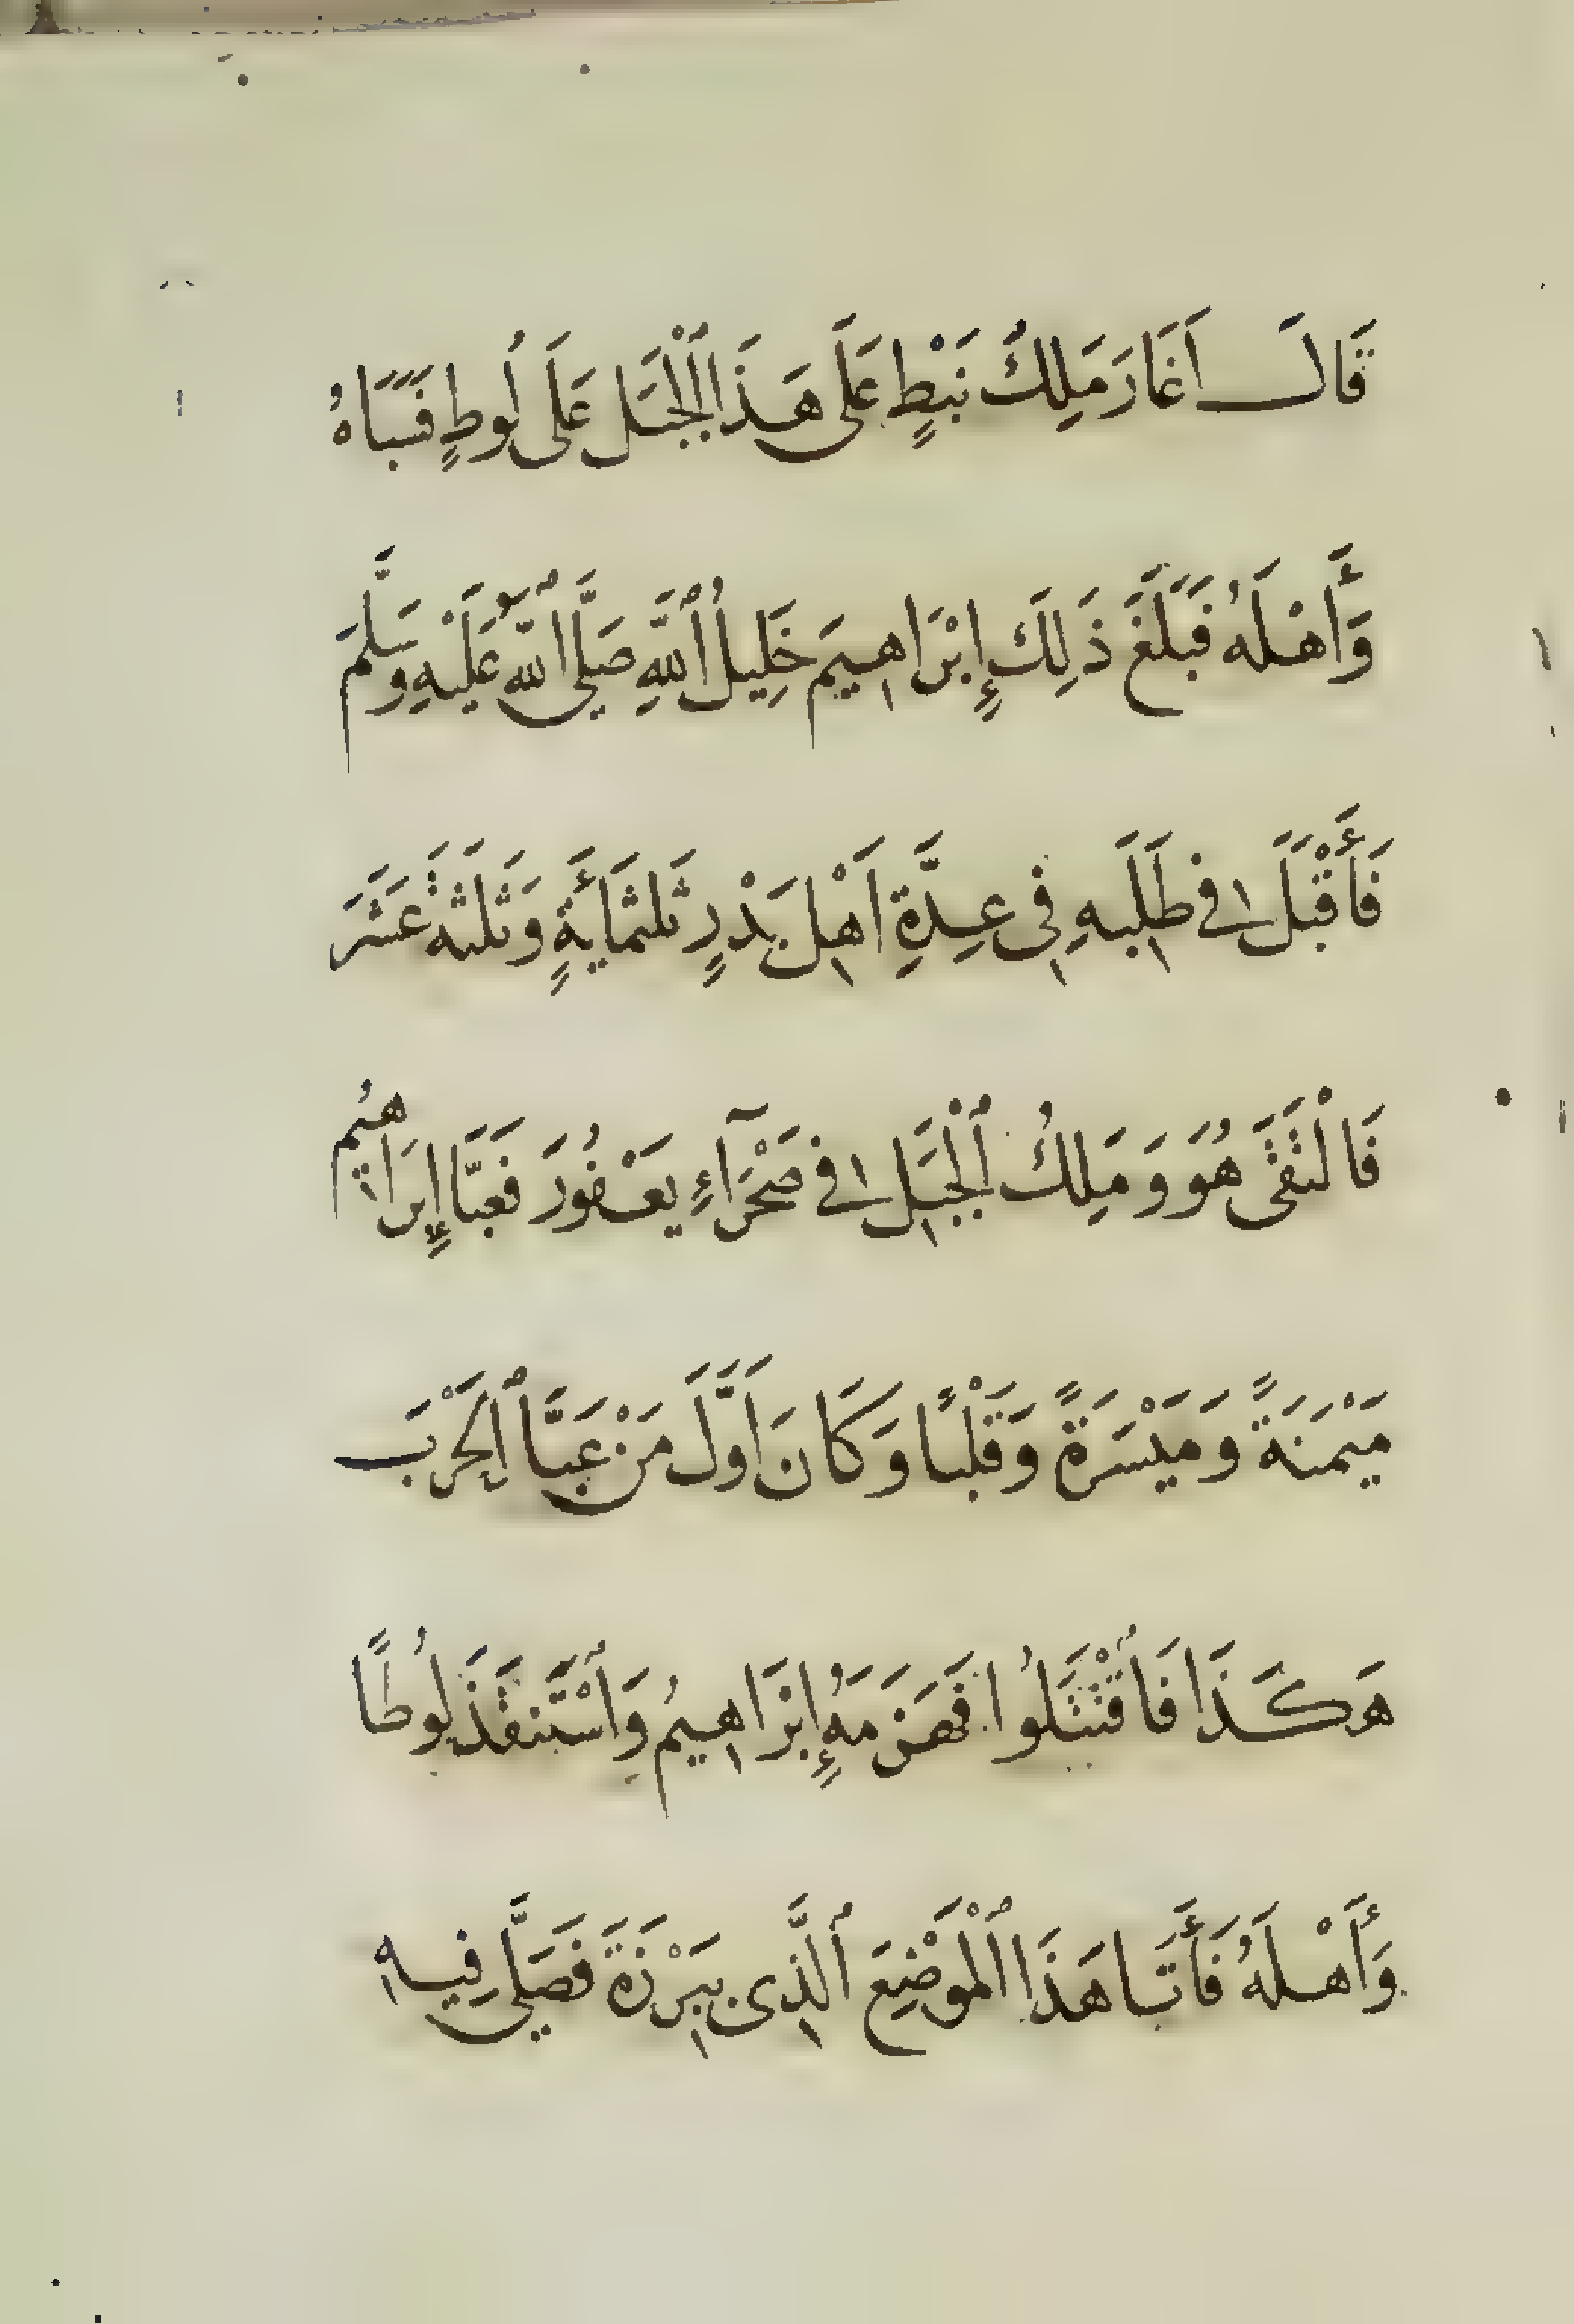 قَالَ اَغَارَ مَلِكُ نَبْطٍ عَلَى هَذَا ٱلْجَبَلِ عَلَى لُوطٍ فَسَبَاهُ
وَأَهْلَهُ فَبَلَغَ ذَلِكَ إِبْرَاهِيمَ خَلِيلُ ٱللَّهِ صَلَّى ٱللَّهُ عَلَيْهِ وَسَلَّمَ
فَأَقْبَلَ فِي طَلَبِهِ فِي عِدَّةِ اَهْلِ بَدْرٍ ثَلَثمَايَةٍ وَثَلَثَةَ عَشَرَ
فَالْتَقَى هُوَ وَمَلِكُ ٱلْجَبَلِ فِي صَحْرَآءِ يَعْفُورَ فَعَبَّا إِبرَاهِيمُ
مَيْمَنَةً وَمَيْسَرَةً وَقَلْبًا وَكَانَ اَوَّلَ مَنْ عَبَّا ٱلْحَرْبَ
هَكَذَا فَاقْتَتَلُوا فَهَزَمَهُ إِبْرَاهِيمُ وَٱسْتَنقَذَ لُوطًا
وَأَهْلَهُ فَأَتَا هَذَا ٱلْمَوْضِعَ ٱلَّذِى بِبَرْزَةَ فَصَلَّى فِيهِ